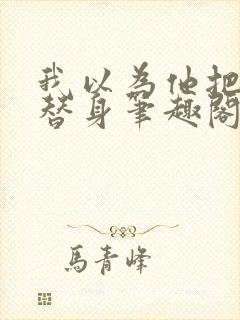 我以为他把
替身笔趣阁
馬青峰